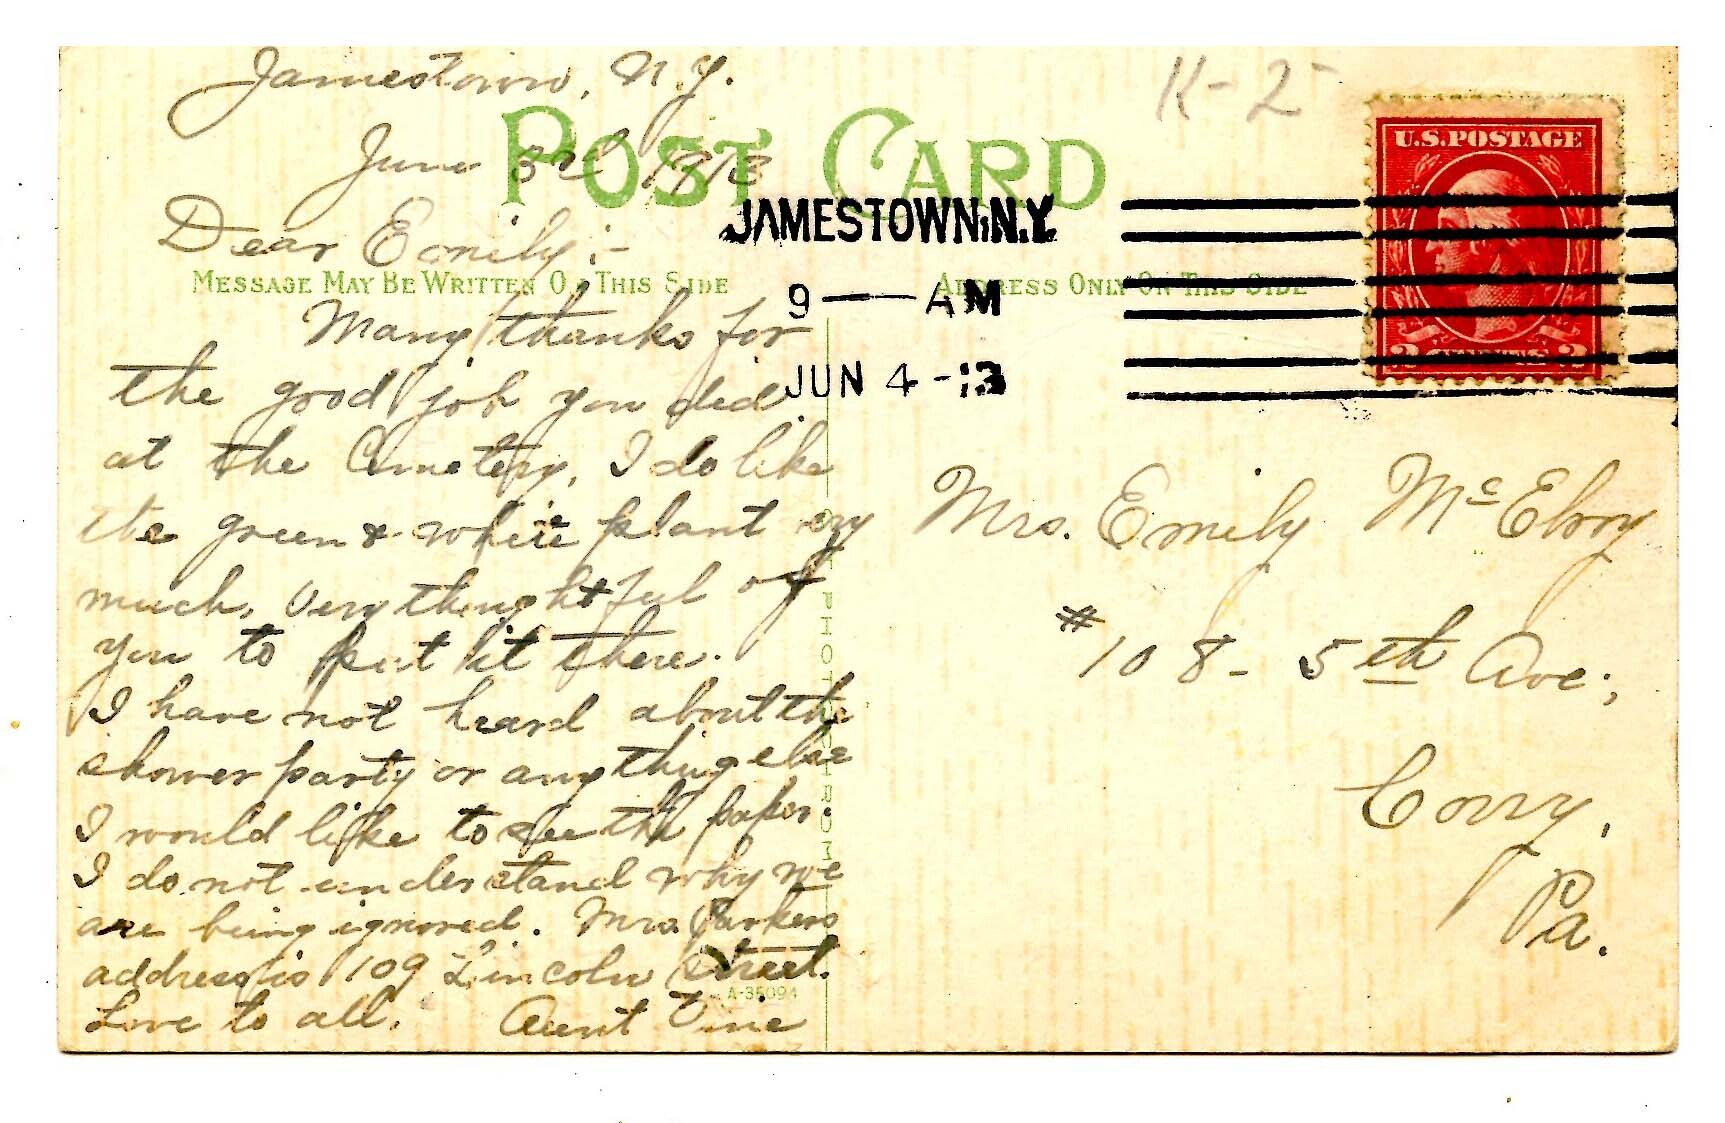 Jamestown, N.Y.
June 3rd 1913
Dear Emily :-
Many thanks for
the good job you did
at the Cemetery, I do like
the green & white plant very
much, Very thoughtful of
you to put it there.
I have not heard about the
shower party or anything else
I would like to see the paper.
I do not understand why we
are being ignored. Mrs. Parkers
address is 109 Lincoln Street.
Love to all. Aunt
POST CARD
MESSAGE MAY BE WRITTEN ON THIS SIDE
ADDRESS ONLY ON THIS SIDE
A-35094
K-2
U.S. POSTAGE
2 CENTS 2
JAMESTOWN, N.Y.
9 — AM
JUN 4 - 13
Mrs. Emily McElroy
#108 - 5th Ave.,
Corry,
Pa.